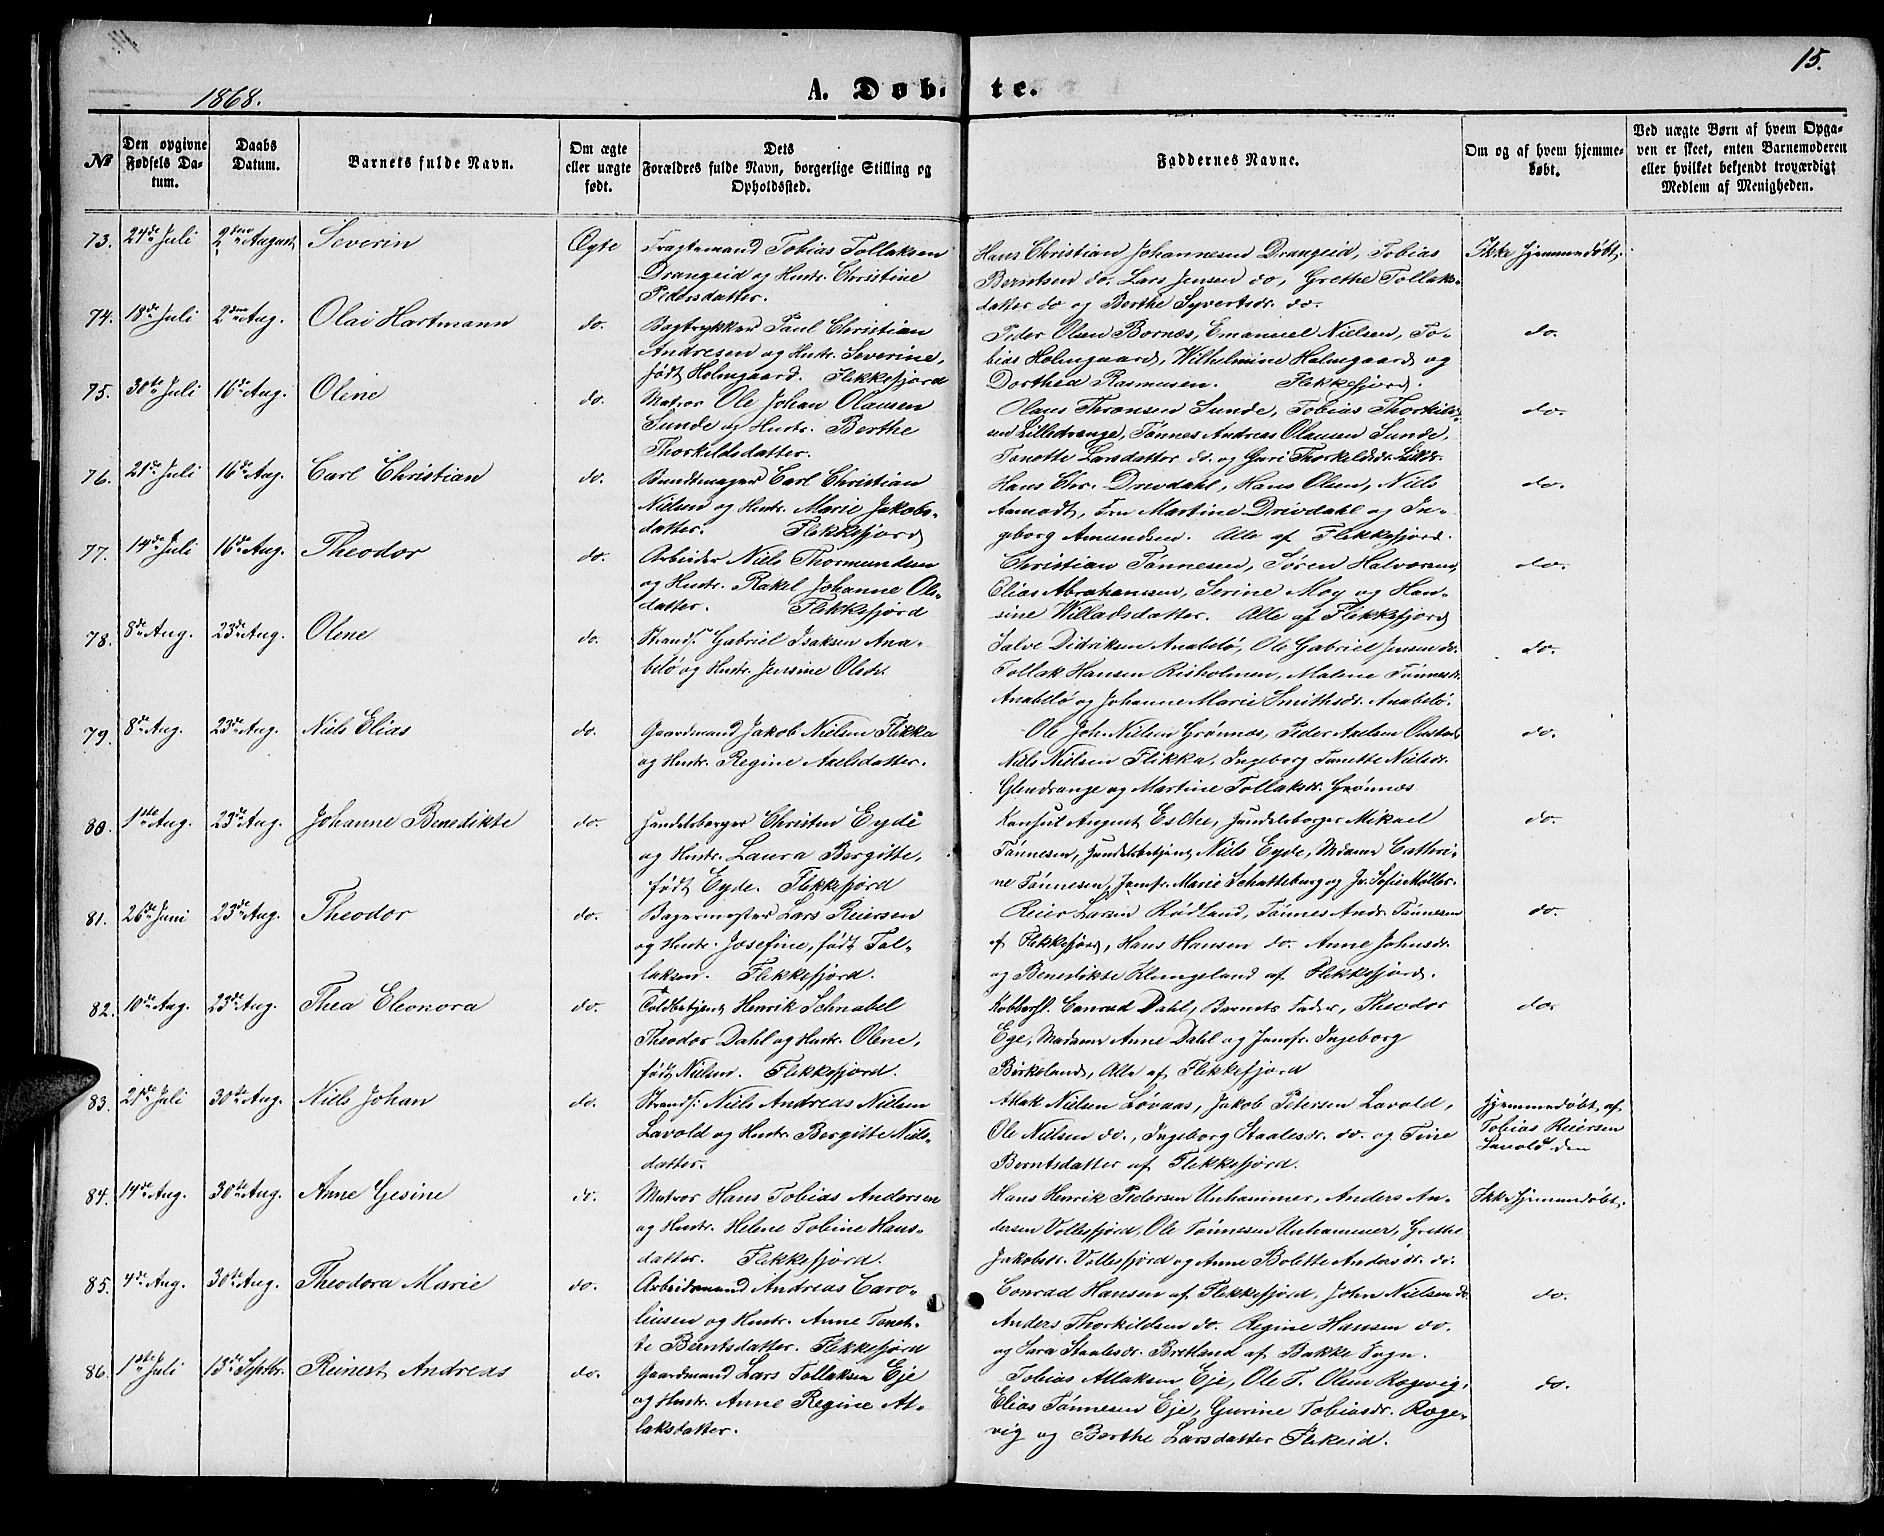 15.
1868.
A. Døbte.
No
Den opgivne Fødsels Datum.
Daabs Datum.
Barnets fulde Navn.
Om ægte eller uægte født.
Dets Forældres fulde Navn, borgerlige Stilling og Opholdssted.
Faddernes Navne.
Om og af hvem hjemmedøbt.
Ved uægte Børn af hvem Opgaven er skeet, enten Barnemoderen eller hvilket bekjendt troværdigt Medlem af Menigheden.
73. 24de Juli 2den August Severin Ægte Fragtemand Tobias Tollaksen
Drangeid og Hustr. Christine
Pedersdatter.
Hans Christian Johannesen Drangeid, Tobias
Berntsen do. Lars Jensen do, Grethe Tollaks-
datter do og Berthe Syvertsdr. do.
Ikke hjemmedøbt.
74. 18de Juli 2den Aug. Olai Hartmann do. Bogtrykker Paul Christian
Andresen og Hustr. Severine,
født Holmgaard. Flekkefjord
Peder Olsen Bornæs, Emanuel Nielsen, To-
bias Holmgaard, Wilhelmine Holmgaard og
Dorthea Rasmusen. Flekkefjord.
do.
75. 30te Juli 16de Aug. Olene do. Matros Ole Johan Olausen
Sunde og Hustr. Berthe
Thorkildsdatter.
Olaus Thronsen Sunde, Tobias Thorkild-
sen Lilledrange, Tønnes Andreas Olausen Sunde,
Tonette Larsdatter do. og Guri Thorkeldsdr. Lilldr.
do.
76. 21de Juli 16de Aug. Carl Christian do. Bundtmager Carl Christian
Nielsen og Hustr. Marie Jakobs-
datter. Flekkefjord
Hans Chr. Drevdahl, Hans Olsen, Niels
Aamodt, Fru Martine Drevdahl og In-
geborg Amundsen. Alle af Flekkefjord.
do.
77. 14de Juli 16de Aug. Theodor do. Arbeider Niels Thormundsen
og Hustr. Rakel Johanne Ols-
datter. Flekkefjord
Christian Tønnesen, Søren Halvorsen,
Elias Abrahamsen, Serine Moy og Han-
sine Willadsdatter. Alle af Flekkefjord
do.
78. 8de Aug. 23de Aug. Olene do. Strands. Gabriel Isaksen Ana-
beló og Hustr. Jensine Olsdr.
Salve Didriksen Anabeló, Ole Gabriel Jensen do.
Tollak Hansen Risholmen, Malene Tønnesdr.
Anabeló og Johanne Marie Smithsdr. Anabeló.
do.
79. 8de Aug. 23de Aug. Niels Elias do. Gaardmand Jakob Nielsen Flikka
og Hustr. Regine Axelsdatter.
Ole Joh. Nielsen Grønnæs, Peder Axelsen
Niels Nielsen Flikka, Ingeborg Tonette Nielsdr.
Glendrange og Martine Tollaksdr. Grønnæs
do.
80. 1ste Aug. 23de Aug. Johanne Benedikte do. Handelsborger Christen Eyde
og Hustr. Laura Bergitte,
født Eyde. Flekkefjord
Konsul August Esche, Handelsborger Mikael
Tønnesen, Handelsbetjent Niels Eyde, Madame Cathri-
ne Tønnesen, Jomfr. Marie Schatteburg og Jr. Sofie Møller.
do.
81. 26de Juni 23de Aug. Theodor do. Bagermester Lars Reiersen
og Hustr. Josefine, født Tol-
laksen. Flekkefjord.
Reier Larsen Rødland, Tønnes Andr. Tønnesen
af Flekkefjord, Hans Hansen do. Anne Johnsdr.
og Benedikte Klungeland af Flekkefjord.
do.
82. 10de Aug. 23de Aug. Thea Eleonora do. Toldbetjent Henrik Schnabel
Theodor Dahl og Hustr. Olene,
født Nielsen. Flekkefjord.
Kobbersl. Conrad Dahl, Barnets Fader, Theodor
Ege, Madame Anne Dahl og Jomfr. Ingeborg
Birkeland, Alle af Flekkefjord
do.
83. 21de Juli 30te Aug. Niels Johan do. Strands. Niels Andreas Nielsen
Lavold og Hustr. Bergitte Niels-
datter.
Atlak Nielsen Løvaas, Jakob Petersen Lavold,
Ole Nielsen do., Ingeborg Staalesdr. do. og Tine
Berntsdatter af Flekkefjord.
Hjemmedøbt af
Tobias Reiersen
Lavold den
84. 14de Aug. 30te Aug. Anne Gesine do. Matros Hans Tobias Andersen
og Hustr. Helene Tobine Hans-
datter. Flekkefjord.
Hans Henrik Pedersen Unhammer, Anders An-
dersen Vollesfjord, Ole Tønnesen Unhammer, Grethe
Jakobsdr. Vollesfjord og Anne Bolette Andersdr. do.
Ikke hjemmedøbt.
85. 4de Aug. 30te Aug. Theodora Marie do. Arbeidsmand Andreas Caro-
liusen og Hustr. Anne Tonet-
te Berntsdatter. Flekkefjord
Conrad Hansen af Flekkefjord, John Nielsen do.
Anders Thorkildsen do. Regine Hansen do.
og Sara Staalesdr. Bretland af Bakke Sogn.
do.
86. 1ste Juli 13de Septbr. Reinert Andreas do. Gaardmand Lars Tollaksen Eje
og Hustr. Anne Regine At-
laksdatter.
Tobias Atlaksen Eje, Ole T. Olsen Rægevig,
Elias Tønnesen Eje, Gurine Tobiasdr. Ræge-
vig og Berthe Larsdatter Flekeid.
do.